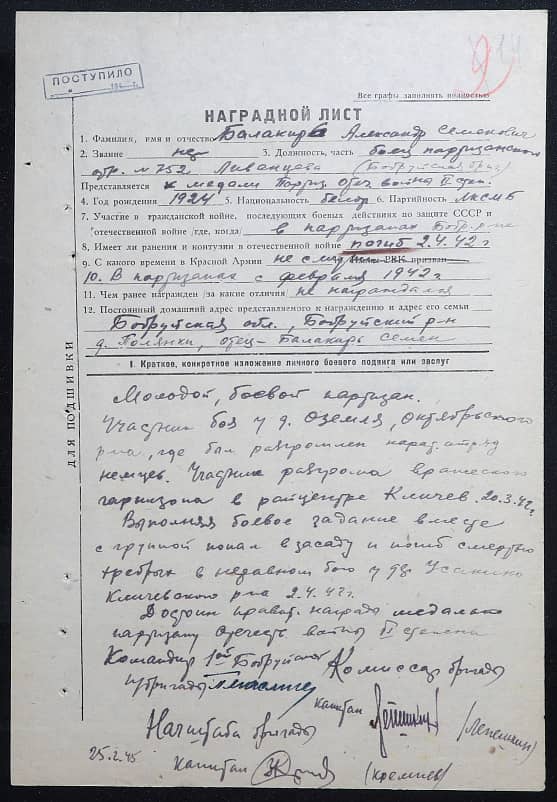 ПОСТУПИЛО
Все графы заполнять полностью
НАГРАДНОЙ ЛИСТ
1. Фамилия, имя и отчество Балакирь Александр Семенович
2. Звание нет 3. Должность, часть боец партизанского
отр. № 752 Ливанцева (Бобруйская бриг)
Представляется к медали Партиз. отеч. война II степ.
4. Год рождения 1924 5. Национальность белор 6. Партийность ЛКСМБ
7. Участие в гражданской войне, последующих боевых действиях по защите СССР и
отечественной войне /где, когда/ в партизанах Бобр. р-на
8. Имеет ли ранения и контузии в отечественной войне погиб 2.4.42 г
9. С какого времени в Красной Армии не служил РВК призван
10. В партизанах с февраля 1942 г
11. Чем ранее награжден /за какие отличия не награждался
12. Постоянный домашний адрес представляемого к награждению и адрес его семьи
Бобруйская обл., Бобруйский р-н
д. Полянки, отец - Балакирь Семен
I. Краткое, конкретное изложение личного боевого подвига или заслуг
ДЛЯ ПОДШИВКИ
Молодой, боевой партизан.
Участник боя у д. Оземля, Октябрьского
р-на, где был разгромлен карат. отряд
немцев. Участник разгрома вражеского
гарнизона в райцентре Кличев 20.3.42 г.
Выполняя боевое задание вместе
с группой попал в засаду и погиб смертью
храбрых в недавном бою у дер. Усакино
Кличевского р-на 2.4.42 г.
Достоин правит. награды медалью
партизану отечеств войны II степени
Командир 1ой Бобруйской Комиссар бригады
п/бригады капитан (Лепешкин)
Нач штаба бригады
25.2.45 капитан (Кремнев)